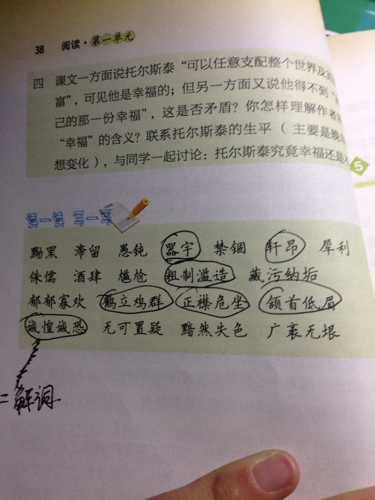 38 阅读·第一单元
四 课文一方面说托尔斯泰“可以任意支配整个世界及其
富”，可见他是幸福的；但另一方面又说他得不到
己的那一份幸福”，这是否矛盾？你怎样理解作者
“幸福”的含义？联系托尔斯泰的生平（主要是晚
想变化），与同学一起讨论：托尔斯泰究竟幸福还是
5
读一读 写一写
黝黑 滞留 愚钝 器宇 禁锢 轩昂 犀利
侏儒 酒肆 尴尬 粗制滥造 藏污纳垢
郁郁寡欢 鹤立鸡群 正襟危坐 颔首低眉
诚惶诚恐 无可置疑 黯然失色 广袤无垠
二解词